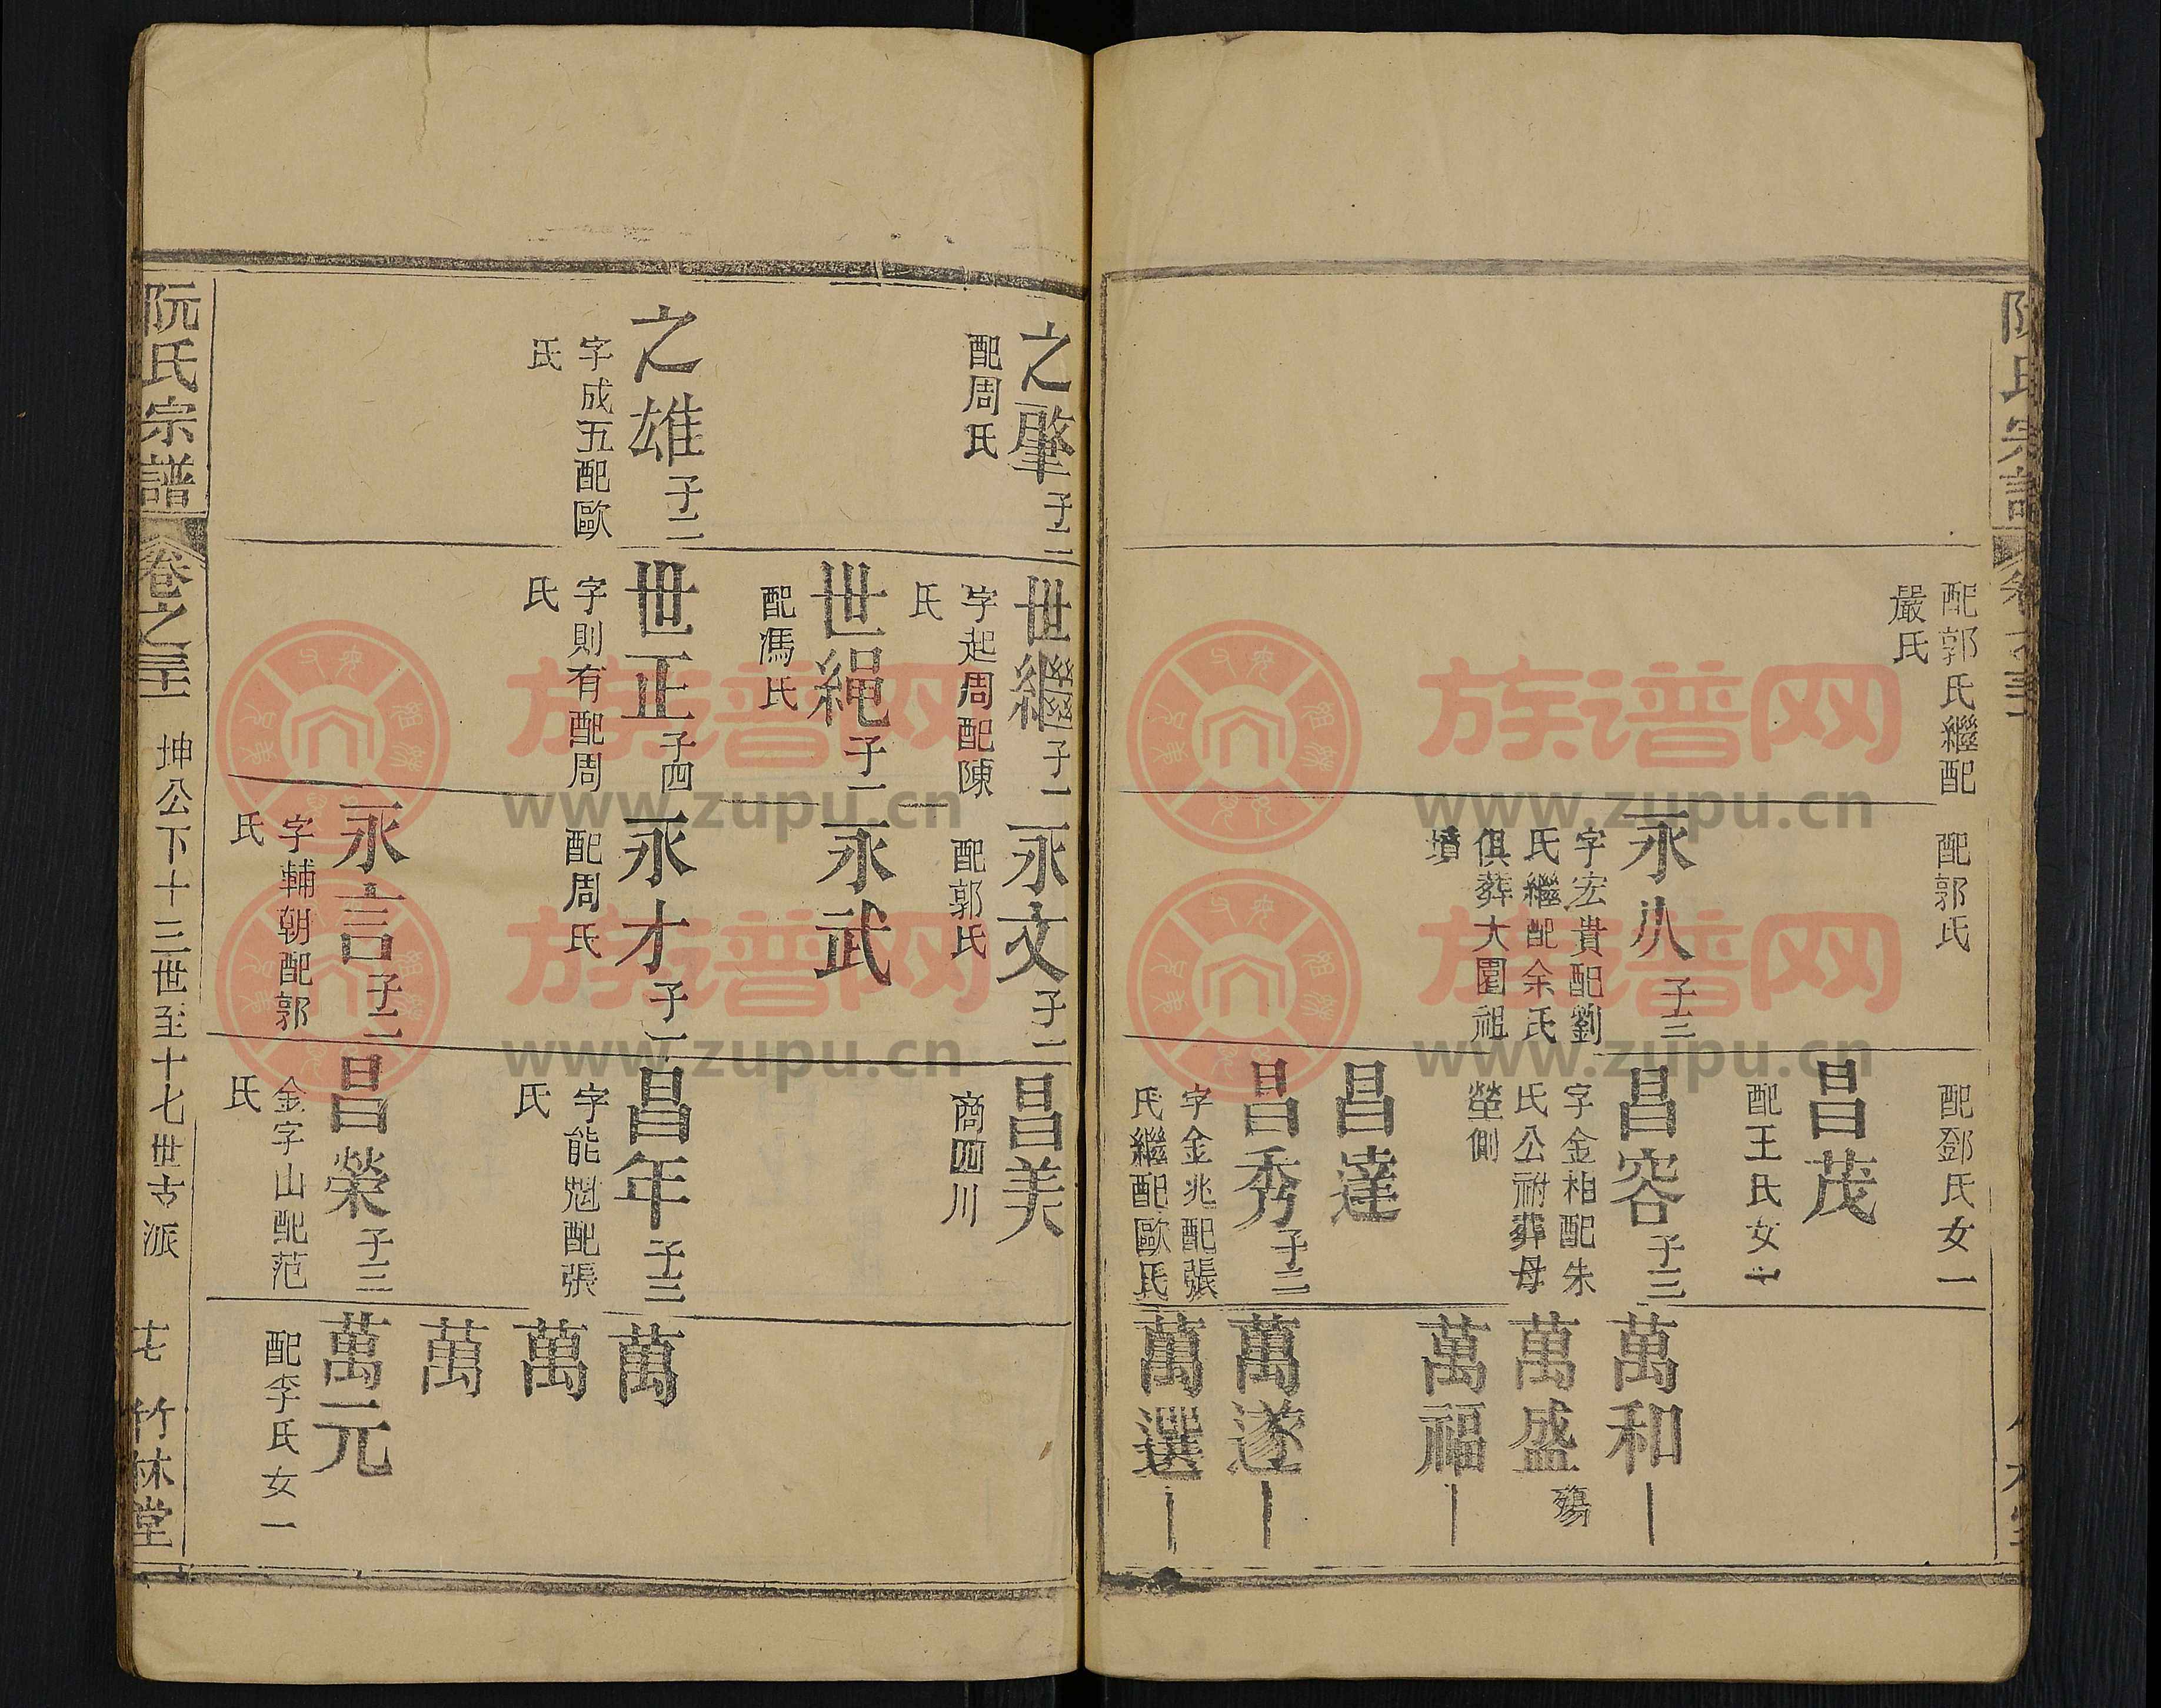 阮氏宗譜
配郭氏繼配
嚴氏
配郭氏
永八 子三
字宏貴配劉
氏繼配余氏
俱葬大園祖
墳
配鄧氏女一
昌茂
配王氏女一
昌容 子三
字金相配朱
氏公祔葬母
塋側
昌達
昌秀 子二
字金兆配張
氏繼配歐氏
萬和
萬盛 殤
萬福
萬遂
萬選
之肇 子二
配周氏
之雄 子二
字成五配歐
氏
世繼 子一
字起周配陳
氏
世繩 子一
配馮氏
世正 子四
字則有配周
氏
永文 子一
配郭氏
永武
永才 子一
配周氏
永言 子二
字輔朝配郭
氏
昌美
商四川
昌年 子三
字能魁配張
氏
昌榮 子三
金字山配范
氏
萬
萬
萬
萬元
配李氏女一
阮氏宗譜 卷之三十 坤公下十三世至十七世古派 十七 竹林堂
族谱网
www.zupu.cn
族谱网
www.zupu.cn
族谱网
www.zupu.cn
族谱网
www.zupu.cn